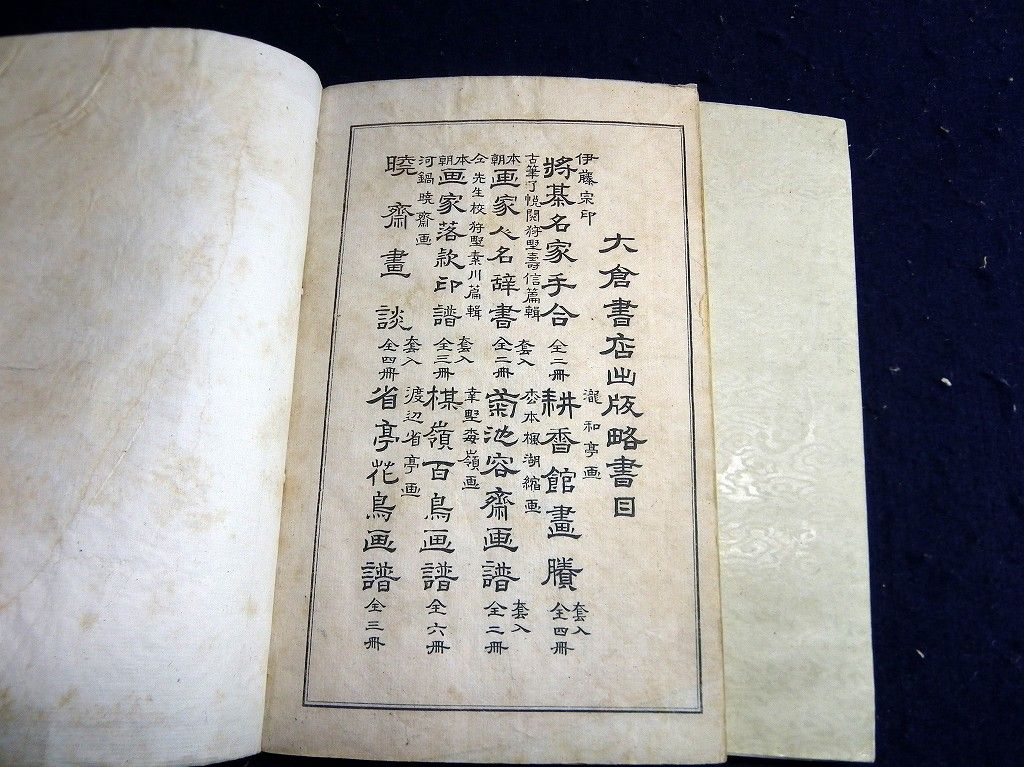 大倉書店出版略書目
伊藤宗印
将棊名家手合 全二冊
瀧和亭画
耕香館畫賸 套入 全四冊
古筆了悦閲狩野壽信篇輯
本朝画家人名辞書 套入 全二冊
松本楓湖縮画
菊池容齋画譜 套入 全二冊
仝先生校狩野素川篇輯
本朝画家落款印譜 套入 全三冊
幸野楳嶺画
楳嶺百鳥画譜 全六冊
河鍋暁齋画
曉齋畫談 套入 全四冊
渡辺省亭画
省亭花鳥画譜 全三冊